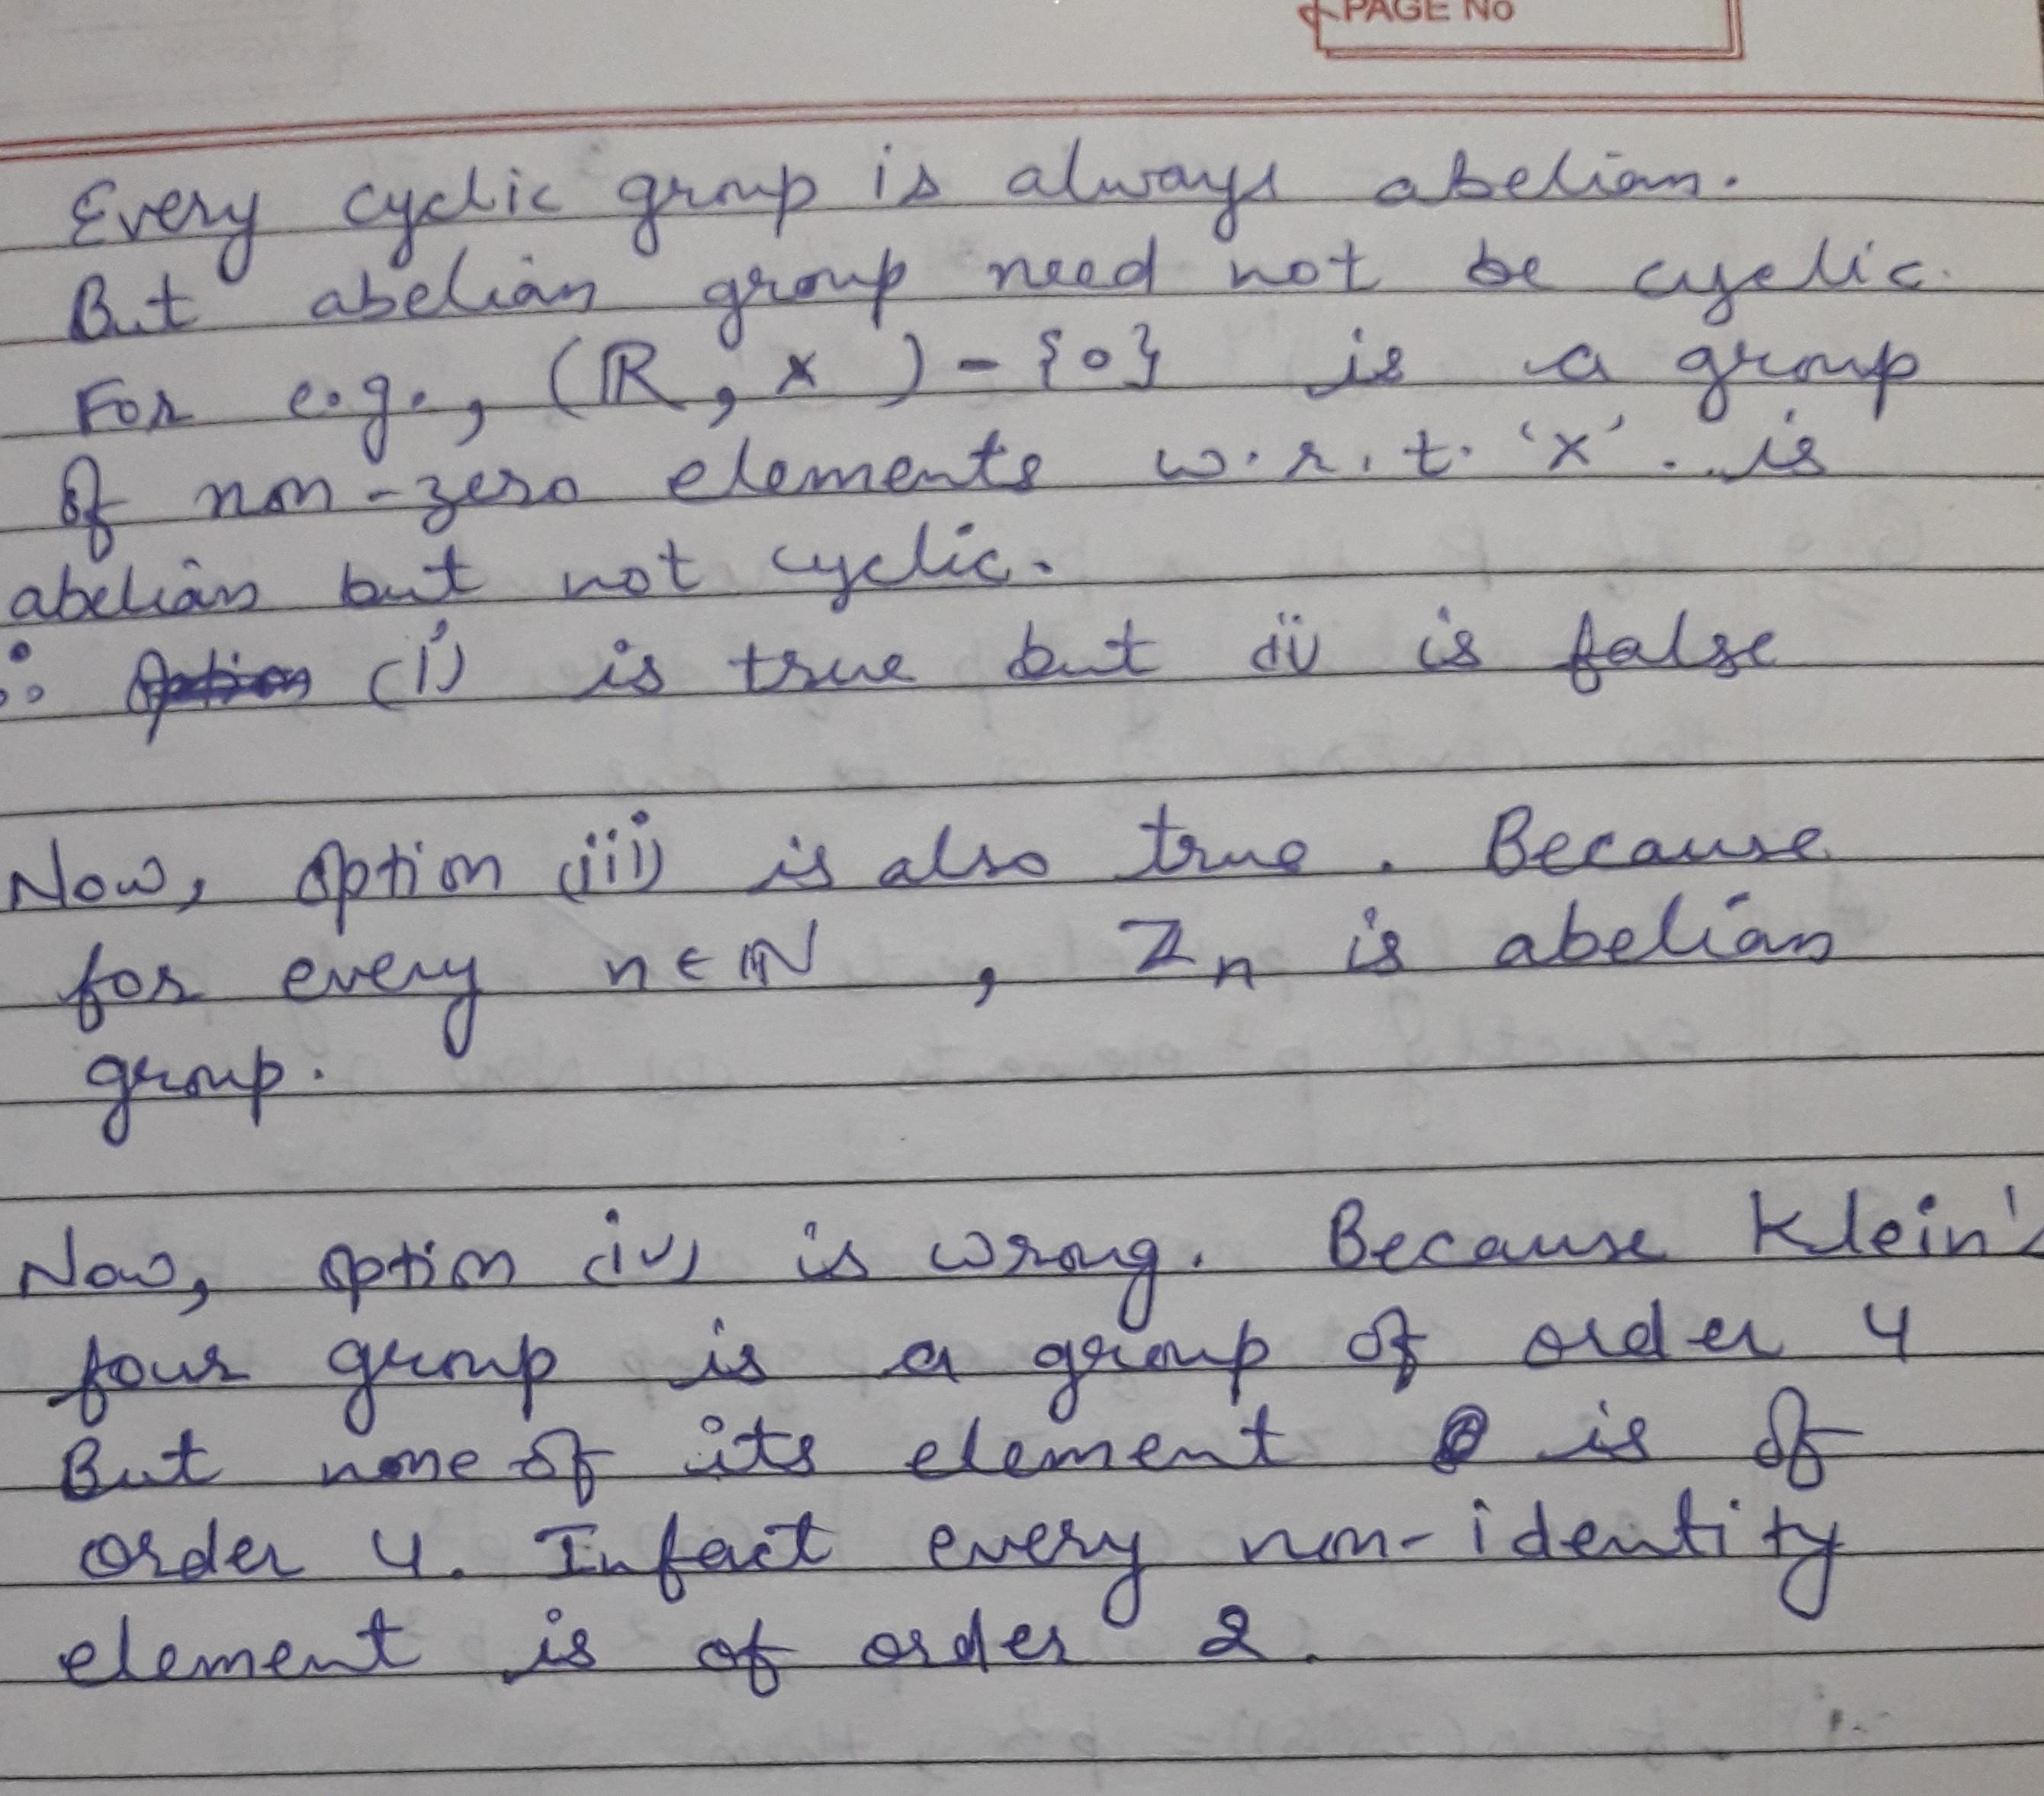 PAGE No
Every cyclic group is always abelian.
But abelian group need not be cyclic.
For e.g., (ℝ, ×) - {0} is a group
of non-zero elements w.r.t. 'x'. is
abelian but not cyclic.
∴ (i) is true but (ii) is false
Now, option (iii) is also true. Because
for every n ∈ ℕ, Zn is abelian
group.
Now, option (iv) is wrong. Because Klein's
four group is a group of order 4
But none of its element is of
order 4. Infact every non-identity
element is of order 2.